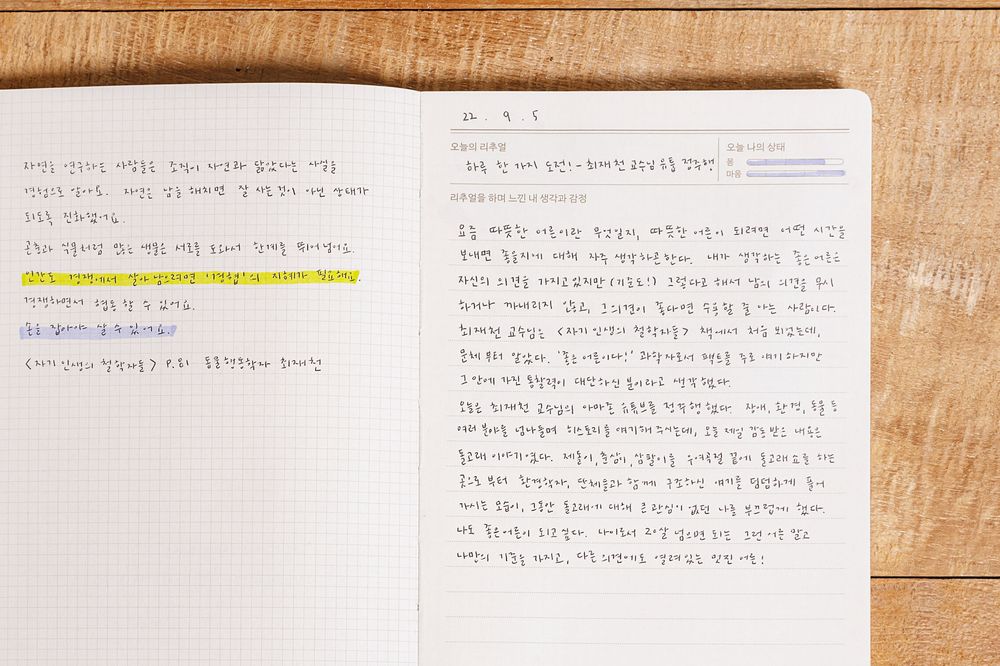 자연을 연구하는 사람들은 조직이 자연과 닮았다는 사실을
경험으로 알아요. 자연은 남을 해치면 잘 사는 것이 아닌 상태가
되도록 진화했어요.
곤충과 식물처럼 많은 생물은 서로를 도와서 한계를 뛰어넘어요.
인간도 경쟁에서 살아남으려면 '경협'의 지혜가 필요해요.
경쟁하면서 협동할 수 있어요.
손을 잡아야 살 수 있어요.
<자기 인생의 철학자들> P.81 동물행동학자 최재천
22 . 9 . 5
오늘의 리추얼
하루 한 가지 도전! - 최재천 교수님 유튭 정주행
오늘 나의 상태
몸
마음
리추얼을 하며 느낀 내 생각과 감정
요즘 따뜻한 어른이란 무엇일지, 따뜻한 어른이 되려면 어떤 시간을
보내면 좋을지에 대해 자주 생각하곤한다. 내가 생각하는 좋은 어른은
자신의 의견을 가지고있지만 (기준도!) 그렇다고 해서 남의 의견을 무시
하거나 까내리지 않고, 그 의견이 좋다면 수용할 줄 아는 사람이다.
최재천 교수님은 <자기 인생의 철학자들> 책에서 처음 뵈었는데,
문체부터 알았다. '좋은 어른이다!' 과학자로서 팩트를 주로 얘기 하지만
그 안에 가진 통찰력이 대단하신 분이라고 생각했다.
오늘은 최재천 교수님의 아마존 유튜브를 정주행했다. 장애, 환경, 동물 등
여러 분야를 넘나들며 히스토리를 얘기해 주시는데, 오늘 제일 감동받은 내용은
돌고래 이야기였다. 제돌이, 춘삼이, 삼팔이를 우여곡절 끝에 돌고래 쇼를 하는
곳으로부터 환경학자, 단체들과 함께 구조하신 얘기를 덤덤하게 풀어
가시는 모습이, 그동안 돌고래에 대해 큰 관심이 없던 나를 부끄럽게 했다.
나도 좋은어른이 되고싶다. 나이로서 20살 넘으면 되는 그런 어른 말고
나만의 기준을 가지고, 다른 의견에도 열려있는 멋진 어른!